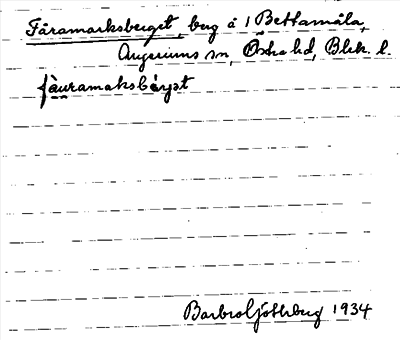 Fåramarksberget, berg å 1 Bettamåla,
Augerums sn, Östra hd, Blek. l.
fàuramaksbæ̀rjət
Barbro Götherberg 1934